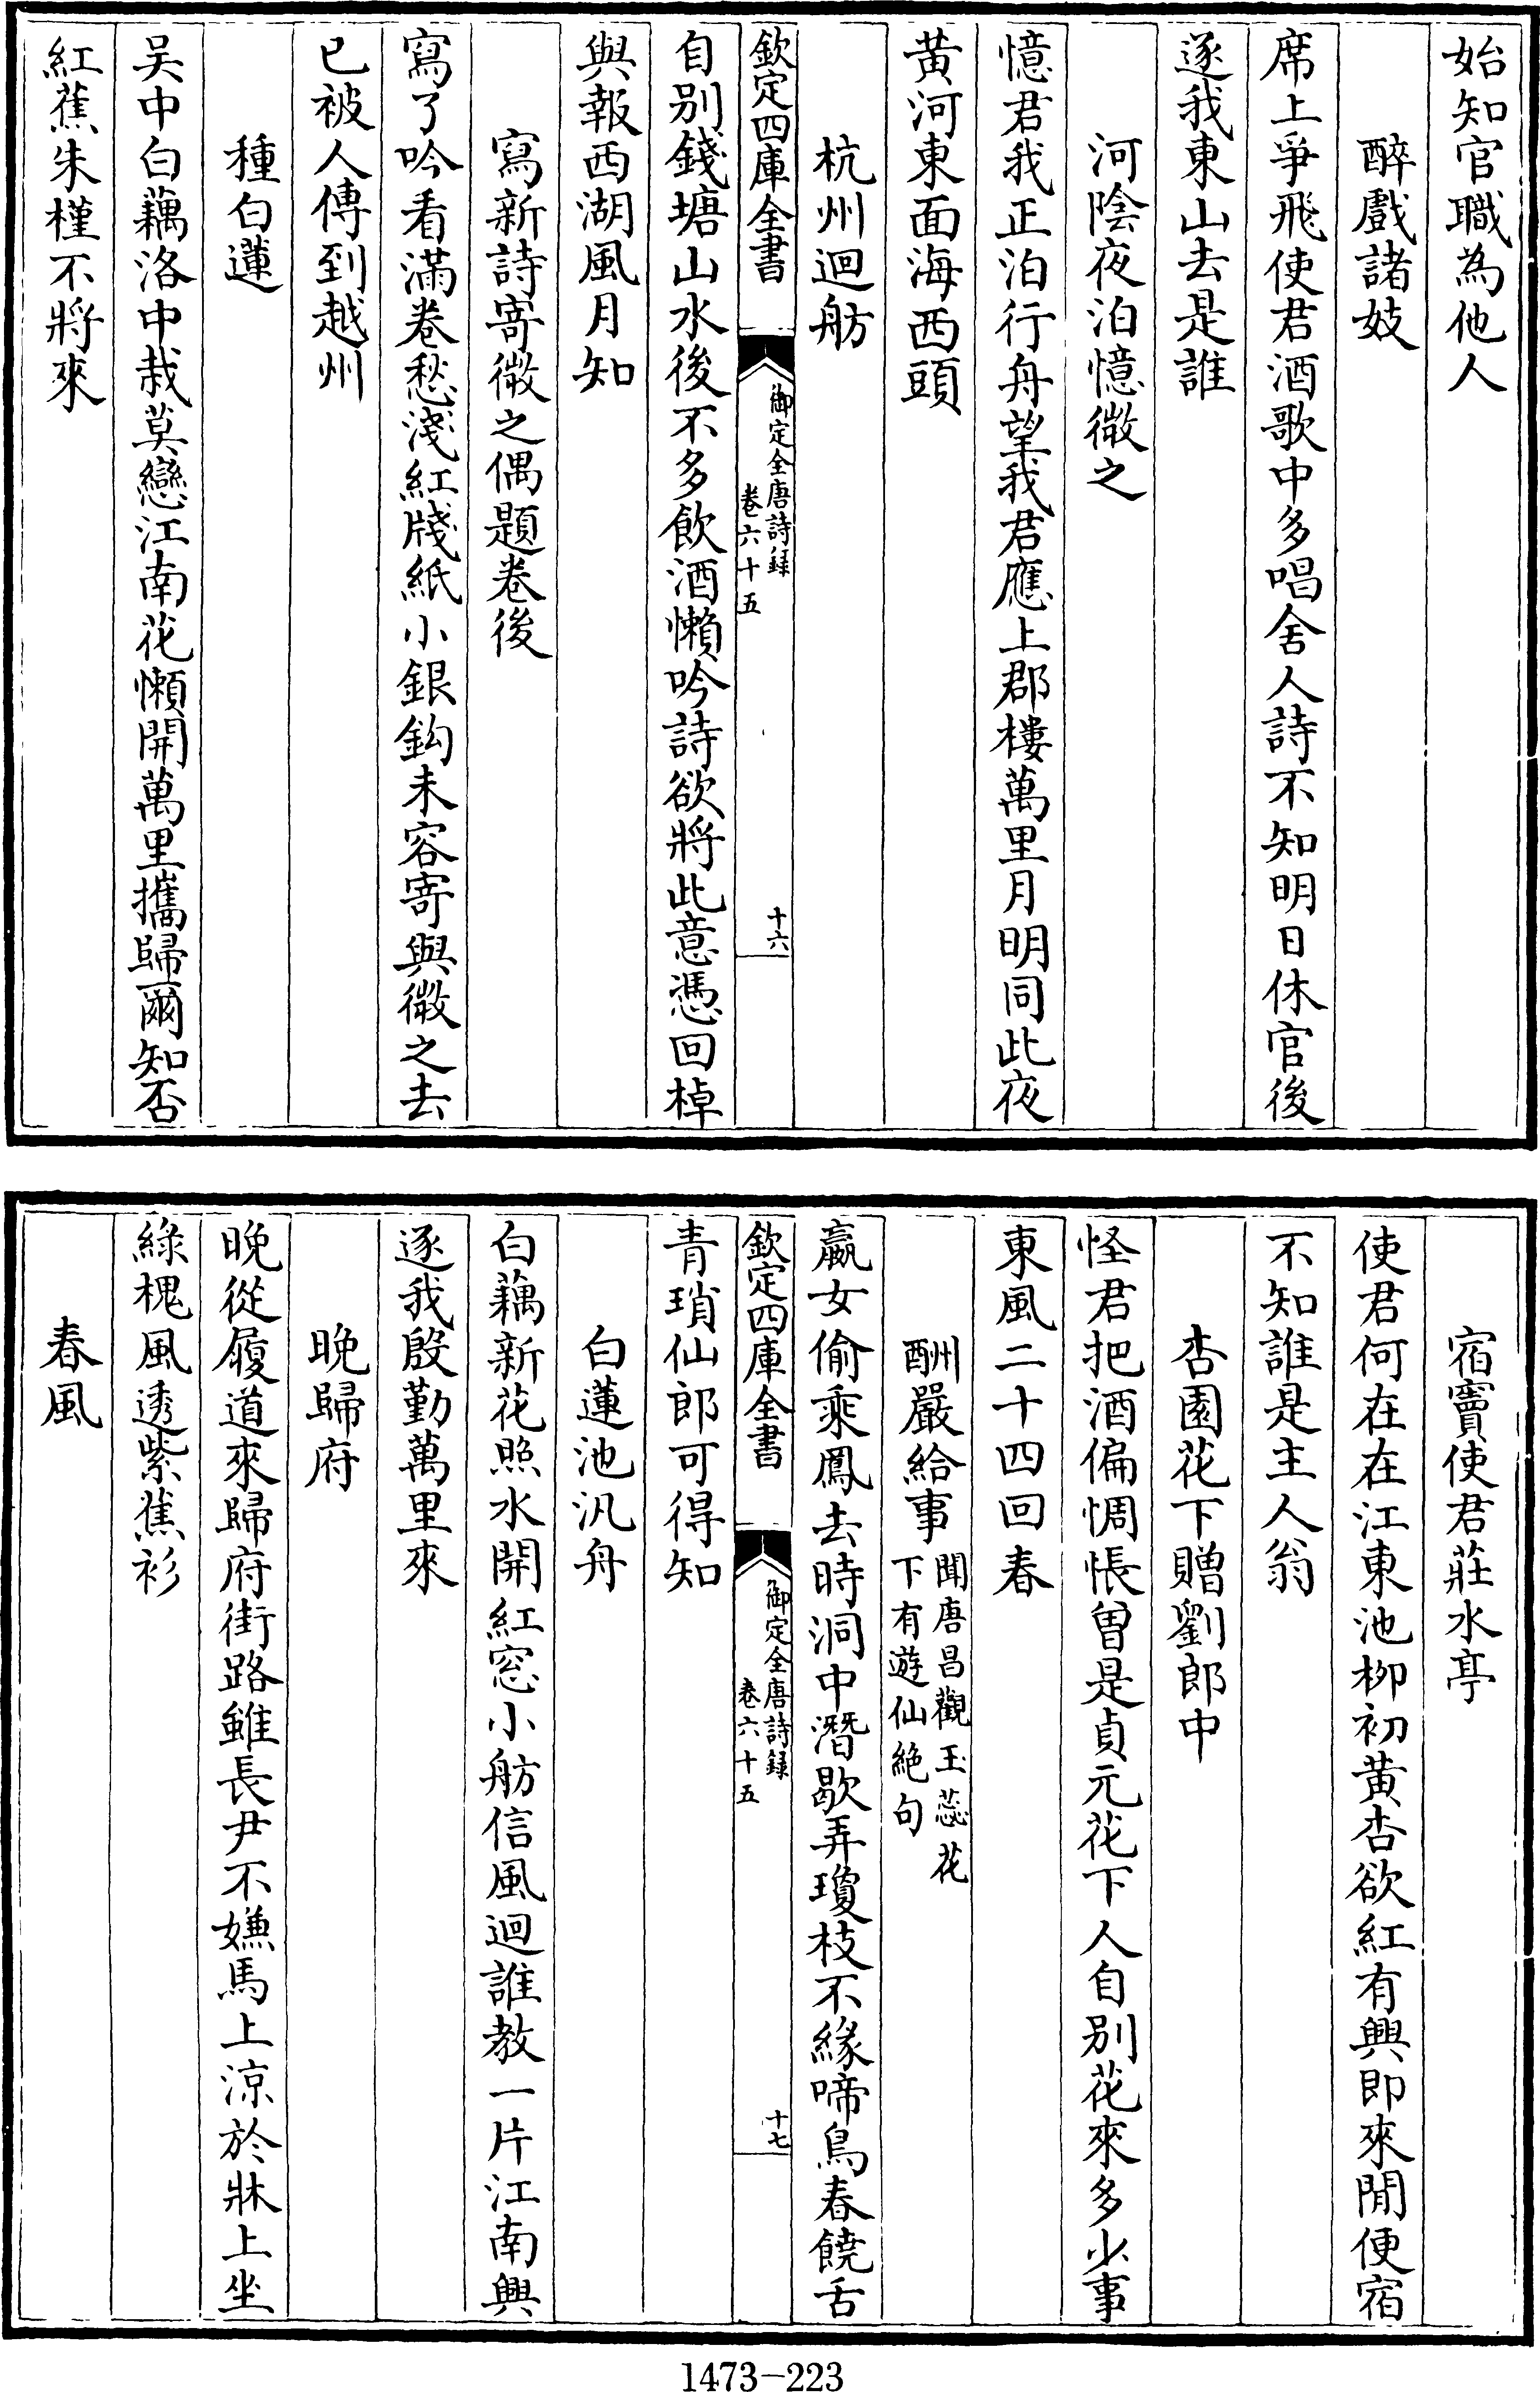 始知官職為他人
醉戲諸妓
席上爭飛使君酒歌中多唱舍人詩不知明日休官後
逐我東山去是誰
河陰夜泊憶微之
憶君我正泊行舟望我君應上郡樓萬里月明同此夜
黄河東面海西頭
杭州迴舫
欽定四庫全書
御定全唐詩録
卷六十五
十六
自別錢塘山水後不多飲酒懶吟詩欲將此意憑回棹
與報西湖風月知
寫新詩寄微之偶題卷後
寫了吟看滿卷愁淺紅牋紙小銀鈎未容寄與微之去
已被人傳到越州
種白蓮
吴中白藕洛中栽莫戀江南花懶開萬里攜歸爾知否
紅蕉朱槿不將來
宿竇使君莊水亭
使君何在在江東池栁初黄杏欲紅有興即來閒便宿
不知誰是主人翁
杏園花下贈劉郎中
怪君把酒偏惆悵曽是貞元花下人自別花來多少事
東風二十四回春
酬嚴給事
聞唐昌觀玉蕊花
下有遊仙絶句
嬴女偷乘鳳去時洞中潛歇弄瓊枝不緣啼鳥春饒舌
欽定四庫全書
御定全唐詩録
卷六十五
十七
青瑣仙郎可得知
白蓮池汎舟
白藕新花照水開紅窓小舫信風迴誰教一片江南興
逐我殷勤萬里來
晚歸府
晚從履道來歸府街路雖長尹不嫌馬上涼於牀上坐
綠槐風透紫蕉衫
春風
1473-223